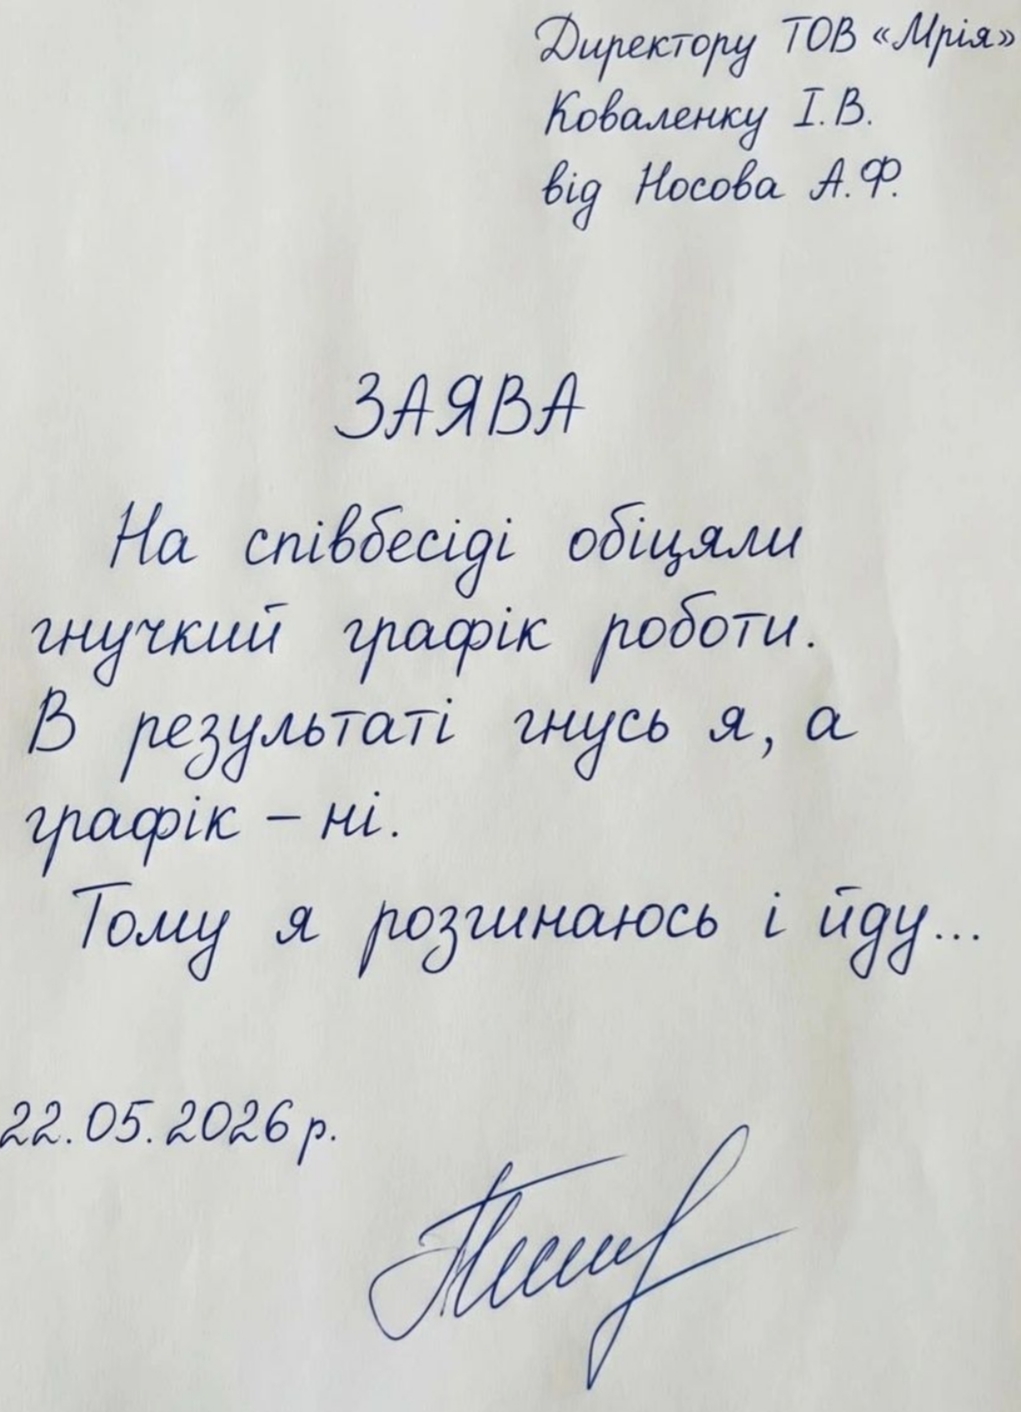 Директору ТОВ «Мрія»
Коваленку І.В.
від Носова А.Ф.
ЗАЯВА
На співбесіді обіцяли
гнучкий графік роботи.
В результаті гнусь я, а
графік – ні.
Тому я розгинаюсь і йду...
22.05.2026 р.